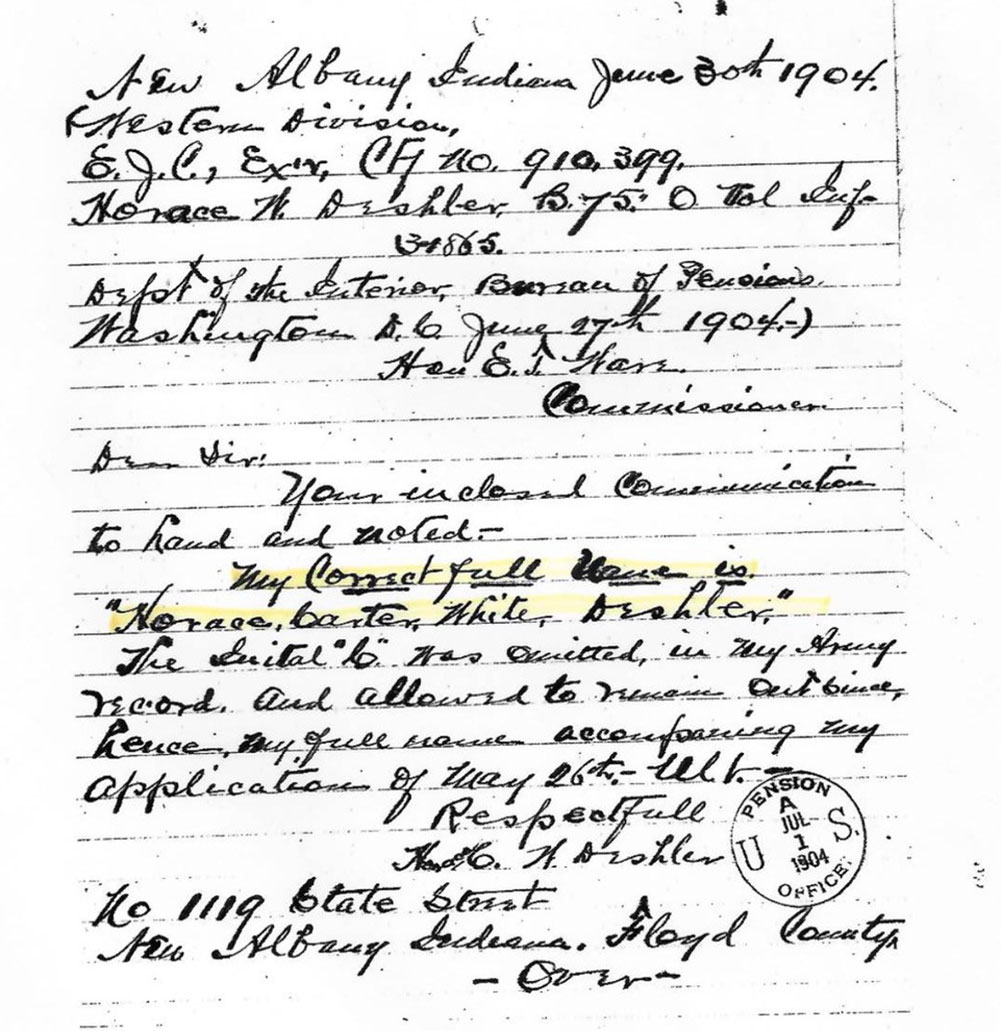 New Albany Indiana June 30th 1904.
(Western Division,
E.J.C., Ex'r, Ctf No. 910,399,
Horace W. Deshler, B. 75." O Vol Inf-
Dept of the Interior, Bureau of Pensions.
Washington D.C June 27th 1904,-)
Hon E. F. Ware.
Commissioner
Dear Sir:
Your inclosed Communication
to hand and noted:-
My Correct full Name is.
"Horace, Carter, White, Deshler,"
The Inital "C" was omitted, in my Army
record. and allowed to remain out since,
hence, my full name accompaning my
application of May 26th.- Ult. -
Respectfull
H. C. W. Deshler
No 1119 State Street
New Albany Indiana. Floyd County,
- Over -
PENSION
A
JUL-
1
1904
U S.
OFFICE